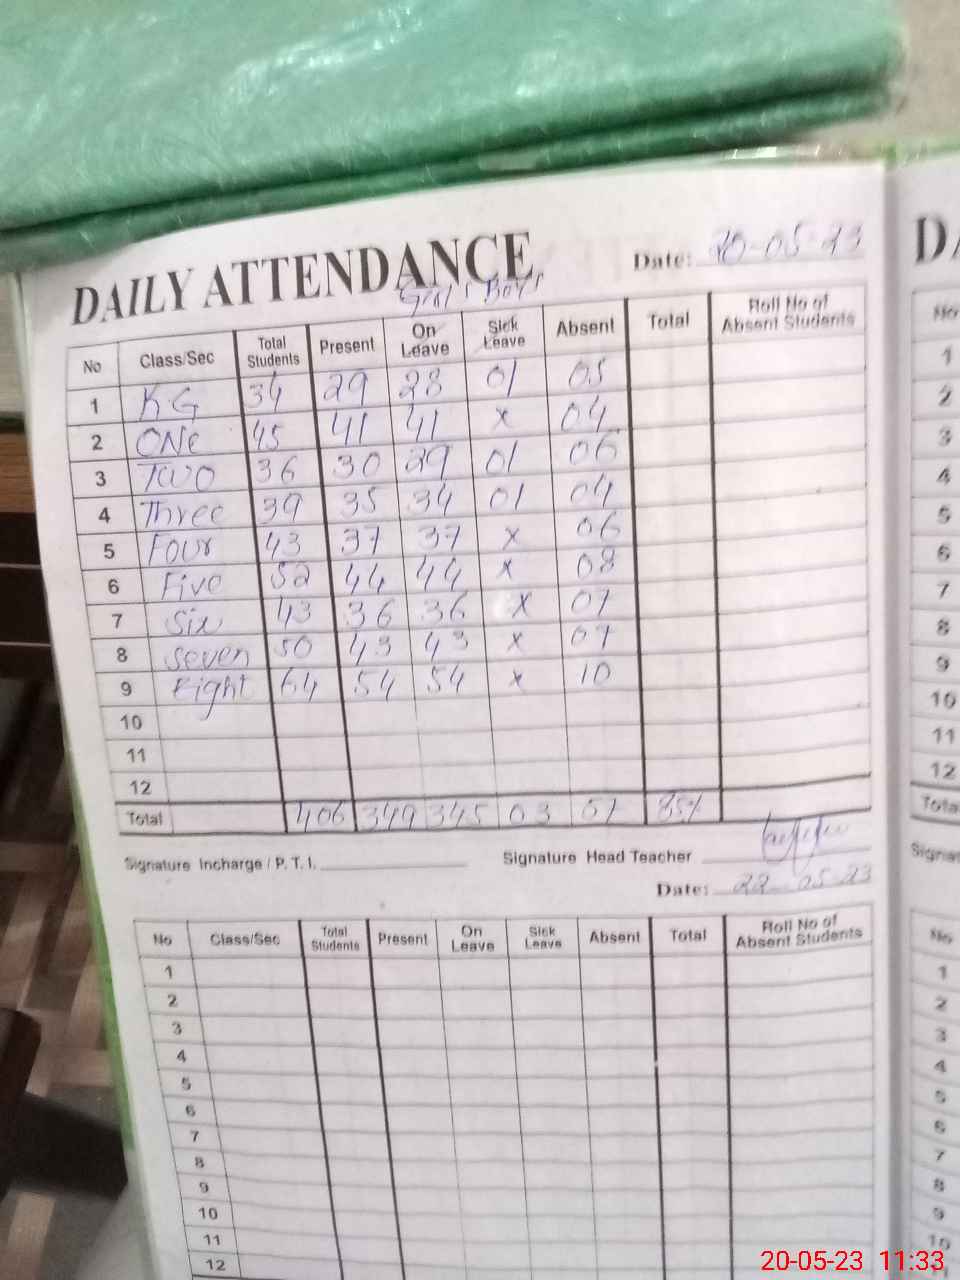 DAILY ATTENDANCE
Date: 20-05-23
Girls Boys
No Class/Sec Total Students Present On Leave Sick Leave Absent Total Roll No of Absent Students
1 K.G 34 29 28 01 05
2 ONe 45 41 41 x 04
3 TWO 36 30 29 01 06
4 Three 39 35 34 01 04
5 Four 43 37 37 x 06
6 Five 52 44 44 x 08
7 Six 43 36 36 x 07
8 Seven 50 43 43 x 07
9 Eight 64 54 54 x 10
10
11
12
Total 406 349 345 03 57 85%
Signature Incharge / P. T. I. Signature Head Teacher
Date: 22-05-23
No Class/Sec Total Students Present On Leave Sick Leave Absent Total Roll No of Absent Students
1
2
3
4
5
6
7
8
9
10
11
12
DA
No
1
2
3
4
5
6
7
8
9
10
11
12
Tota
Signat
No
1
2
3
4
5
6
7
8
9
10
20-05-23 11:33